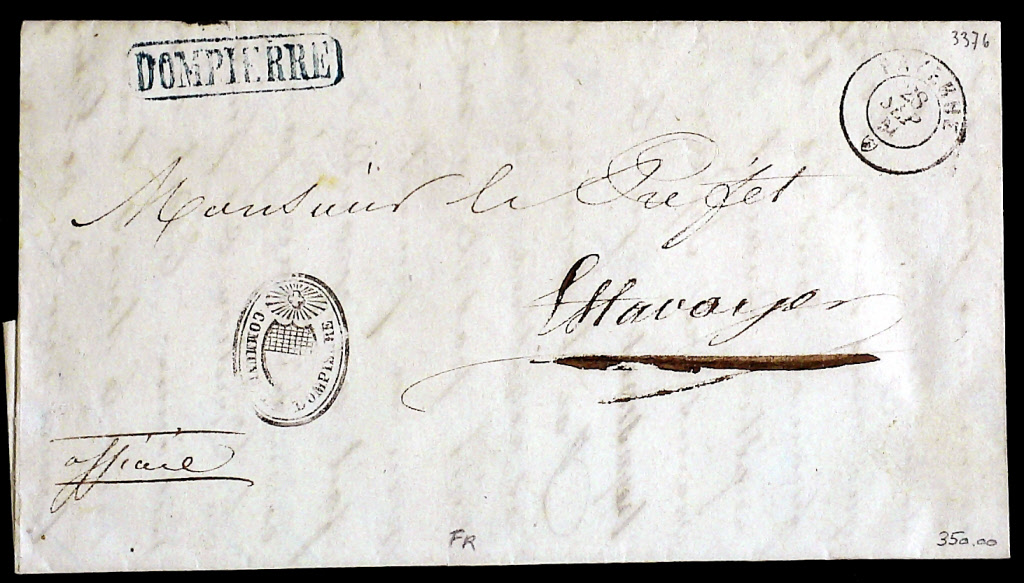 3376
DOMPIERRE
PAYERNE
28 SEP
Monsieur le Préfet
Estavayer
COMMUNE DOMPIERRE
officiel
FR
350.00